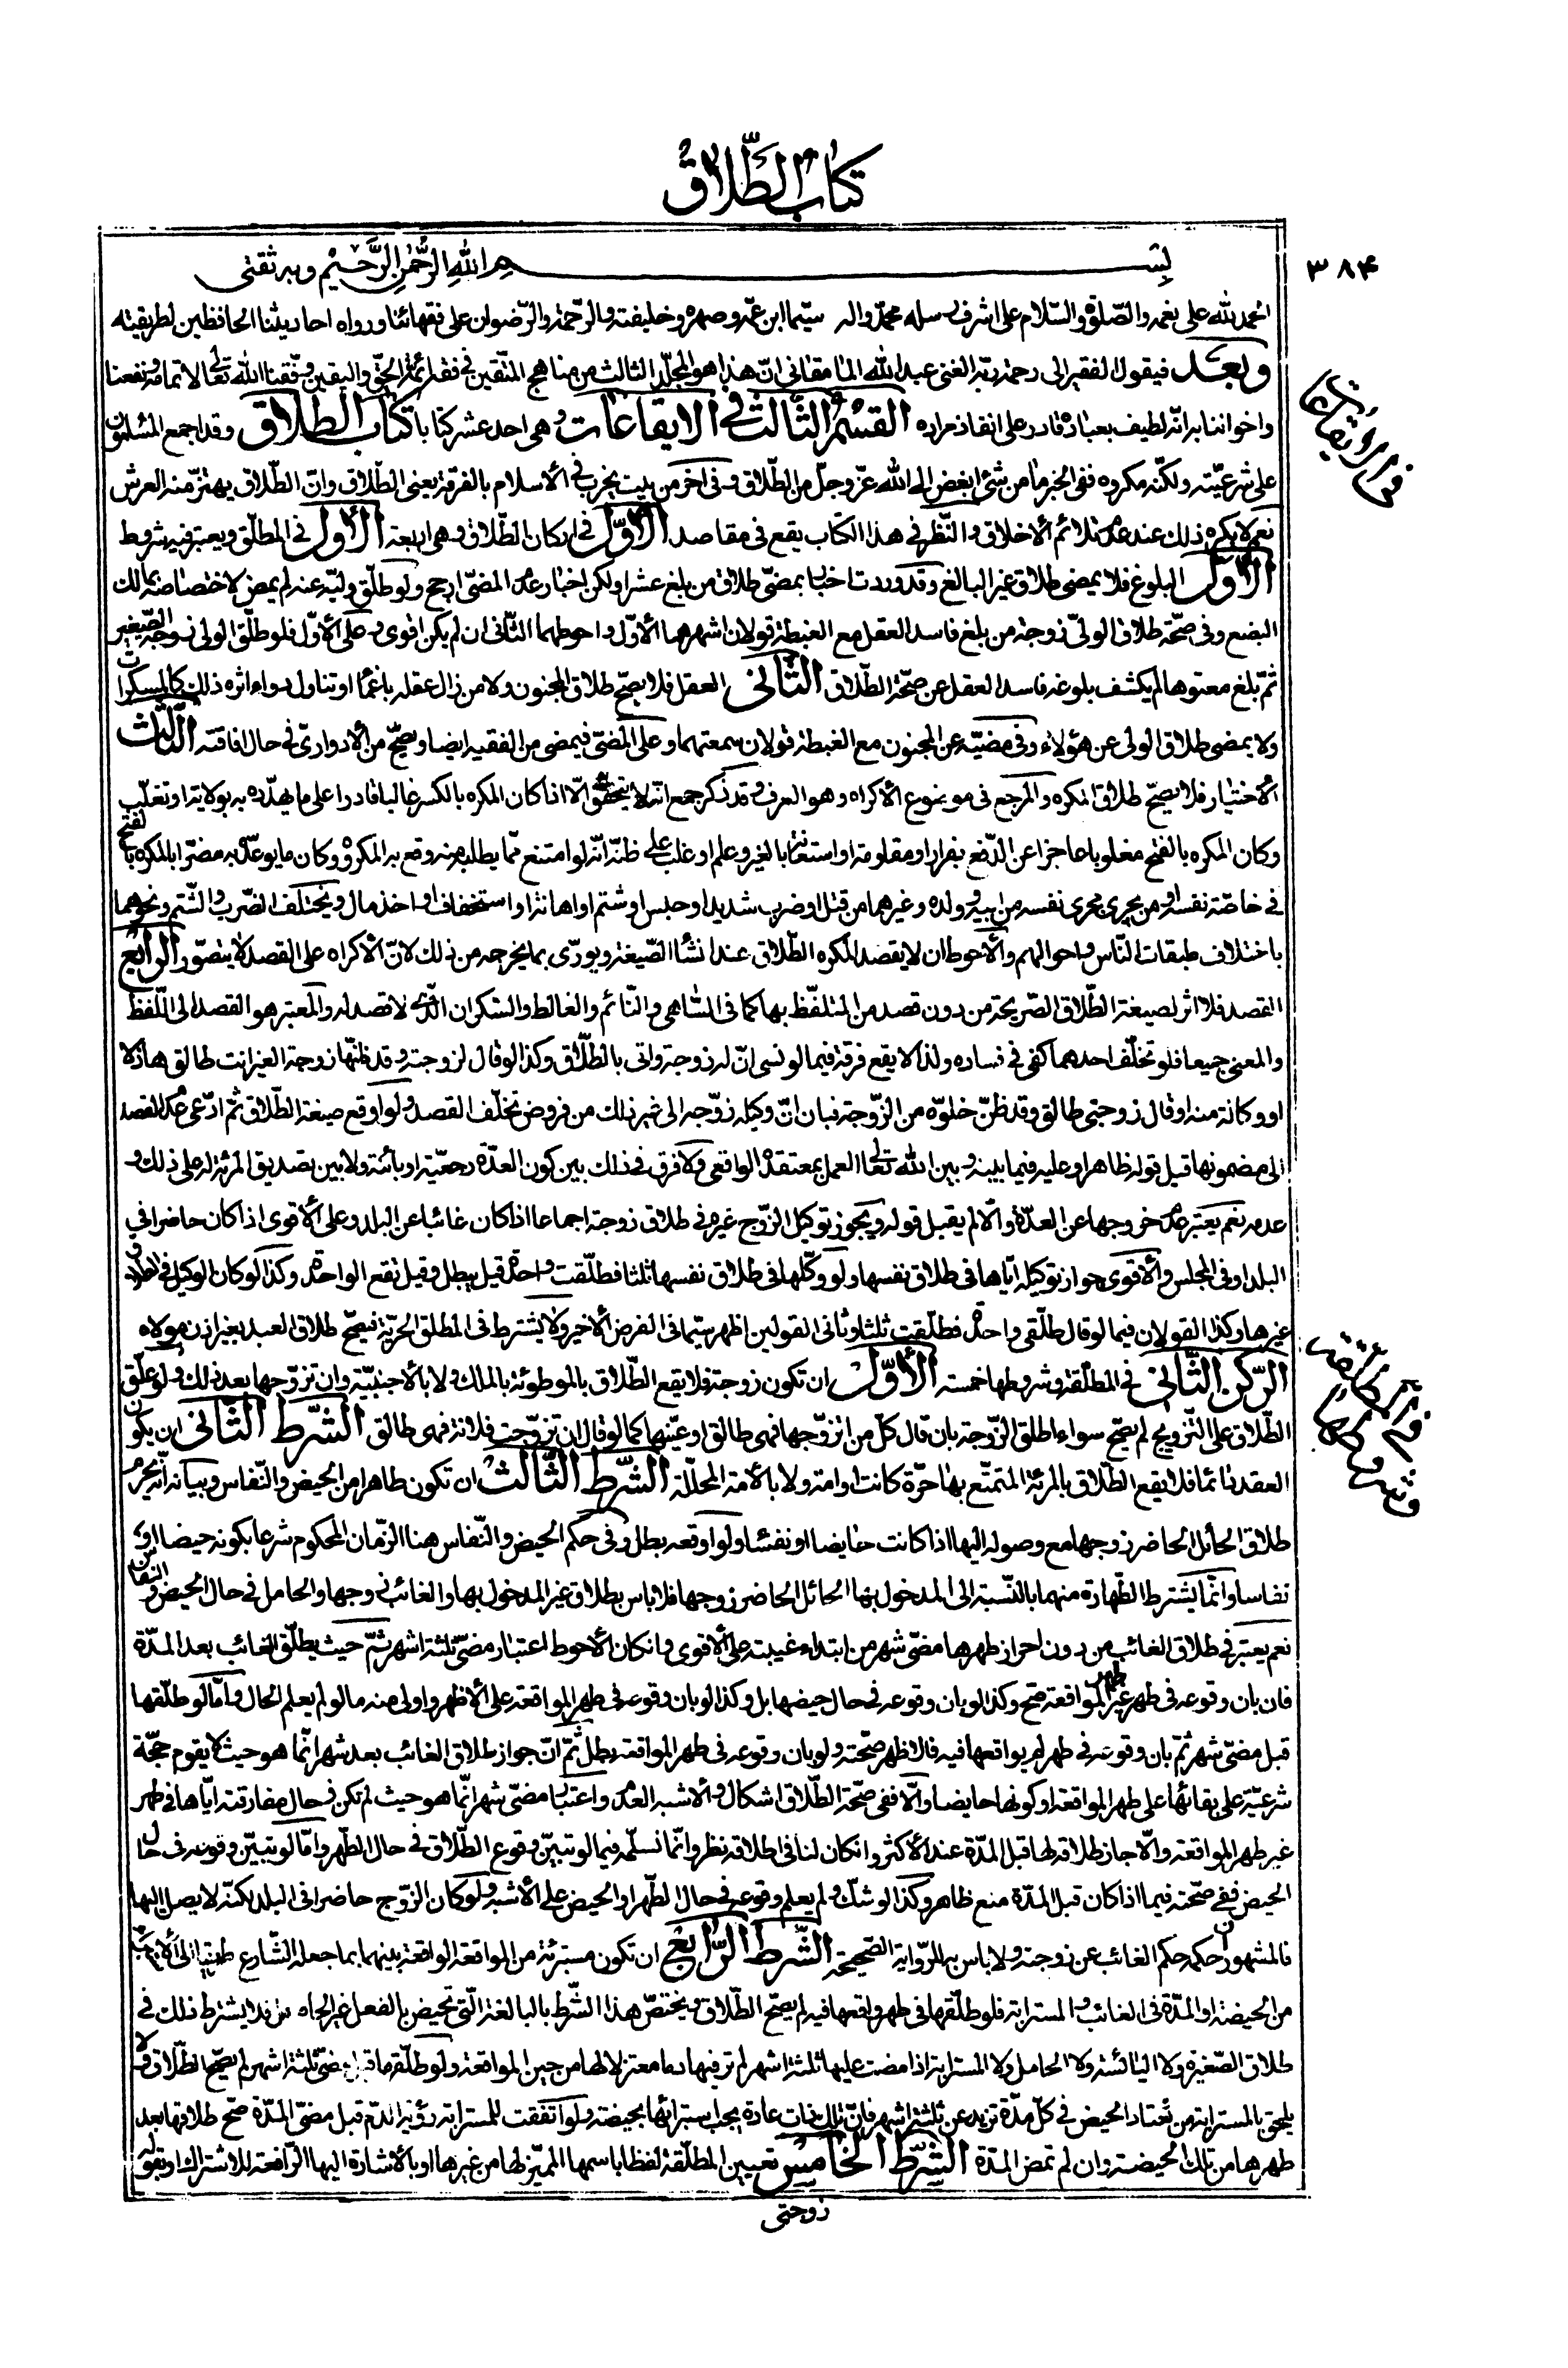 كتاب الطّلاق
٣٨۴
بسم اللّه الرّحمن الرّحيم وبه ثقتى
الحمد للّه على نعمه والصّلوة والسّلام على اشرف رسله محمّد واله سيّما ابن عمّه وصهره وخليفته والرّحمة والرّضوان على فقهائنا ورواة احاديثنا الحافظين لطريقيته
وبعد فيقول الفقير الى رحمة ربّه الغنى عبد اللّه المامقانى انّ هذا هو المجلّد الثالث من مناهج المتّقين فى فقه ائمّة الحقّ واليقين وفّقنا اللّه تعالى لاتمامه ونفعنا
واخواننا به انّه لطيف بعباده قادر على انفاذ مراده القسم الثّالث فى الايقاعات وهى احد عشر كتابا كتاب الطلاق وقد اجمع المسلمون
فى الايقاعات
على شرعيّته ولكنّه مكروه ففى الخبر ما من شئ ابغض الى اللّه عزّ وجلّ من الطّلاق وفى اخر من بيت يخرب فى الاسلام بالفرقة يعنى الطّلاق وانّ الطّلاق يهتزّ منه العرش
نعم لا يكره ذلك عند عدم تلائم الاخلاق والنّظر فى هذا الكتاب يقع فى مقاصد الاوّل فى اركان الطّلاق وهى اربعة الاوّل فى المطلّق ويعتبر فيه شروط
الاوّل البلوغ فلا يمضى طلاق غير البالغ وقد وردت اخبار بمضىّ طلاق من بلغ عشرا ولكن اخبار عدم المضىّ ارجح ولو طلّق وليّه عنه لم يمض لاختصاصه بمالك
البضع وفى صحّة طلاق الولىّ زوجة من بلغ فاسد العقل مع الغبطة قولان اشهرهما الاوّل واحوطهما الثّانى ان لم يكن اقوى وعلى الاوّل فلو طلّق الولى زوجة الصّغير
ثمّ بلغ معتوها لم يكشف بلوغه فاسد العقل عن صحّة الطّلاق الثّانى العقل فلا يصحّ طلاق المجنون ولا من زال عقله باغماء او تناول دواء اثره ذلك كالمسكرات
ولا يمضى طلاق الولى عن هؤلاء وفى مضيّه عن المجنون مع الغبطة قولان سمعتهما وعلى المضىّ فيمضى من الفقيه ايضا ويصحّ من الادوارىّ فى حال افاقته الثّالث
الاختيار فلا يصحّ طلاق المكره والمرجع فى موضوع الاكراه وهو العرف وقد ذكر جمع انّه لا يتحقّق الّا اذا كان المكره بالكسر غالبا قادرا على ما يهدّده به بولاية او تغلّب
وكان المكره بالفتح مغلوبا عاجزا عن الدّفع بفرار او مقاومة او استعانة بالغير وعلم او غلب على ظنّه انّه لو امتنع ممّا يطلبه منه وقع به المكروه وكان ما يوعده به مضرّا بالمكره بالفتح
فى خاصّة نفسه او من يجرى مجرى نفسه من ابيه وولده وغيرهما من قتل او ضرب شديد او حبس او شتم او اهانة او استخفاف او اخذ مال ويختلف الضّرب والشّتم ونحوهما
باختلاف طبقات النّاس واحوالهم والاحوط ان لا يقصد المكره الطّلاق عند انشاء الصّيغة ويورّى بما يخرجه من ذلك لانّ الاكراه على القصد لا يتصوّر الرّابع
القصد فلا اثر لصيغة الطّلاق الصّريحة من دون قصد من المتلفّظ بها كما فى السّاهى والنّائم والغالط والسّكران الّذى لا قصد له والمعتبر هو القصد الى اللّفظ
والمعنى جميعا فلو تخلّف احدهما كفى فى فساده ولذا لا يقع فرقة فيما لو نسى انّ له زوجة واتى بالطّلاق وكذا لو قال لزوجته وقد ظنّها زوجة الغير انت طالق هازلا
او وكالة منه او قال زوجتى طالق وقد ظنّ خلوّه من الزّوجة فبان انّ وكيله زوّجه الى غير ذلك من فروض تخلّف القصد ولو اوقع صيغة الطّلاق ثمّ ادّعى عدم القصد
الى مضمونها قبل قوله ظاهرا وعليه فيما بينه وبين اللّه تعالى العمل بمعتقده الواقعى ولا فرق فى ذلك بين كون العدّة رجعيّة او بائنة ولا بين تصديق المرئة له على ذلك و
عدمه نعم يعتبر عدم خروجها عن العدّة والّا لم يقبل قوله ويجوز توكيل الزّوج غيره فى طلاق زوجته اجماعا اذا كان غائبا عن البلد وعلى الاقوى اذا كان حاضرا فى
البلد او فى المجلس والاقوى جواز توكيله ايّاها فى طلاق نفسها ولو وكّلها فى طلاق نفسها ثلثا فطلّقت واحدة قيل يبطل وقيل تقع الواحدة وكذا لو كان الوكيل فى الطلاق
غيرها وكذا القولان فيما لو قال طلّقى واحدة فطلّقت ثلثا وثانى القولين اظهر سيّما فى الفرض الاخير ولا يشترط فى المطلق الحريّة فيصحّ طلاق العبد بغير اذن مولاه
الرّكن الثّانى فى المطلّقة وشروطها خمسة الاوّل ان تكون زوجة فلا يقع الطّلاق بالموطوئة بالملك ولا بالاجنبيّة وان تزوّجها بعد ذلك ولو علّق
فى المطلّقة وشروطها
الطّلاق على التّزويج لم يصحّ سواء اطلق الزّوجة بان قال كلّ من اتزوّجها فهى طالق او عيّنها كما لو قال ان تزوّجت فلانة فهى طالق الشّرط الثّانى ان يكون
العقد دائما فلا يقع الطّلاق بالمرئة المتمتّع بها حرّة كانت او امة ولا بالامة المحلّلة الشّرط الثّالث ان تكون طاهرا من الحيض والنّفاس وبيانه انّه يحرم
طلاق الحائل الحاضر زوجها مع وصوله اليها اذا كانت حايضا او نفساء ولو اوقعه بطل وفى حكم الحيض والنّفاس هنا الزّمان المحكوم شرعا بكونه حيضا او
نفاسا وانّما يشترط الطّهارة منهما بالنّسبة الى المدخول بها الحائل الحاضر زوجها فلا باس بطلاق غير المدخول بها والغائب زوجها والحامل فى حال الحيض والنفاس
نعم يعتبر فى طلاق الغائب من دون احراز طهرها مضىّ شهر من ابتداء غيبته على الاقوى وانكان الاحوط اعتبار مضىّ ثلثة اشهر ثمّ حيث يطلّق الغائب بعد المدّة
فان بان وقوعه فى طهر غير طهر المواقعة صحّ وكذا لو بان وقوعه فى حال حيضها بل وكذا لو بان وقوعه فى طهر المواقعة على الاظهر واولى منه ما لو لم يعلم الحال وامّا لو طلّقها
قبل مضىّ شهر ثمّ بان وقوعه فى طهر لم يواقعها فيه فالاظهر صحّته ولو بان وقوعه فى طهر المواقعة بطل ثمّ انّ جواز طلاق الغائب بعد شهر انّما هو حيث لا يقوم حجّة
شرعيّة على بقائها على طهر المواقعة او كونها حايضا والّا ففى صحّة الطّلاق اشكال والاشبه العدم واعتبار مضىّ شهر انّما هو حيث لم تكن فى حال مفارقته ايّاها فى طهر
غير طهر المواقعة والّا جاز طلاقه لها قبل المدّة عند الاكثر وانكان لنا فى اطلاقه نظر وانّما نسلّمه فيما لو تبيّن وقوع الطّلاق فى حال الطّهر وامّا لو تبيّن وقوعه فى حال
الحيض ففى صحّته فيما اذا كان قبل المدّة منع ظاهر وكذا لو شكّ ولم يعلم وقوعه فى حال الطّهر او الحيض على الاشبه ولو كان الزّوج حاضرا فى البلد لكنّه لا يصل اليها
فالمشهور ان حكمه حكم الغائب عن زوجته ولا باس به للرّواية الصّحيحة الشّرط الرّابع ان تكون مستبرئة من المواقعة الواقعة بينهما بما جعله الشّارع طريقا الى الاستبراء
من الحيضة او المدّة فى الغائب والمسترابة فلو طلّقها فى طهر واقعها فيه لم يصحّ الطّلاق ويختصّ هذا الشّرط بالبالغة الّتى تحيض بالفعل غير الحامل فلا يشترط ذلك فى
طلاق الصّغيرة ولا اليائسة ولا الحامل ولا المسترابة اذا مضت عليها ثلثة اشهر لم تر فيها دما معتزلا لها من حين المواقعة ولو طلّقها قبل مضىّ ثلثة اشهر لم يصحّ الطّلاق ولا
يلحق بالمسترابة من تعتاد الحيض فى كلّ مدّة تزيد عن ثلثة اشهر فانّ تلك ذات عادة يجب استبرائها بحيضة ولو اتّفقت للمسترابة رؤية الدّم قبل مضىّ المدّة صحّ طلاقها بعد
طهرها من تلك الحيضة وان لم تمض المدّة الشّرط الخامس تعيين المطلّقة لفظا باسمها المميّز لها من غيرها او بالاشارة اليها الرّافعة للاشتراك او بقوله
زوجتى